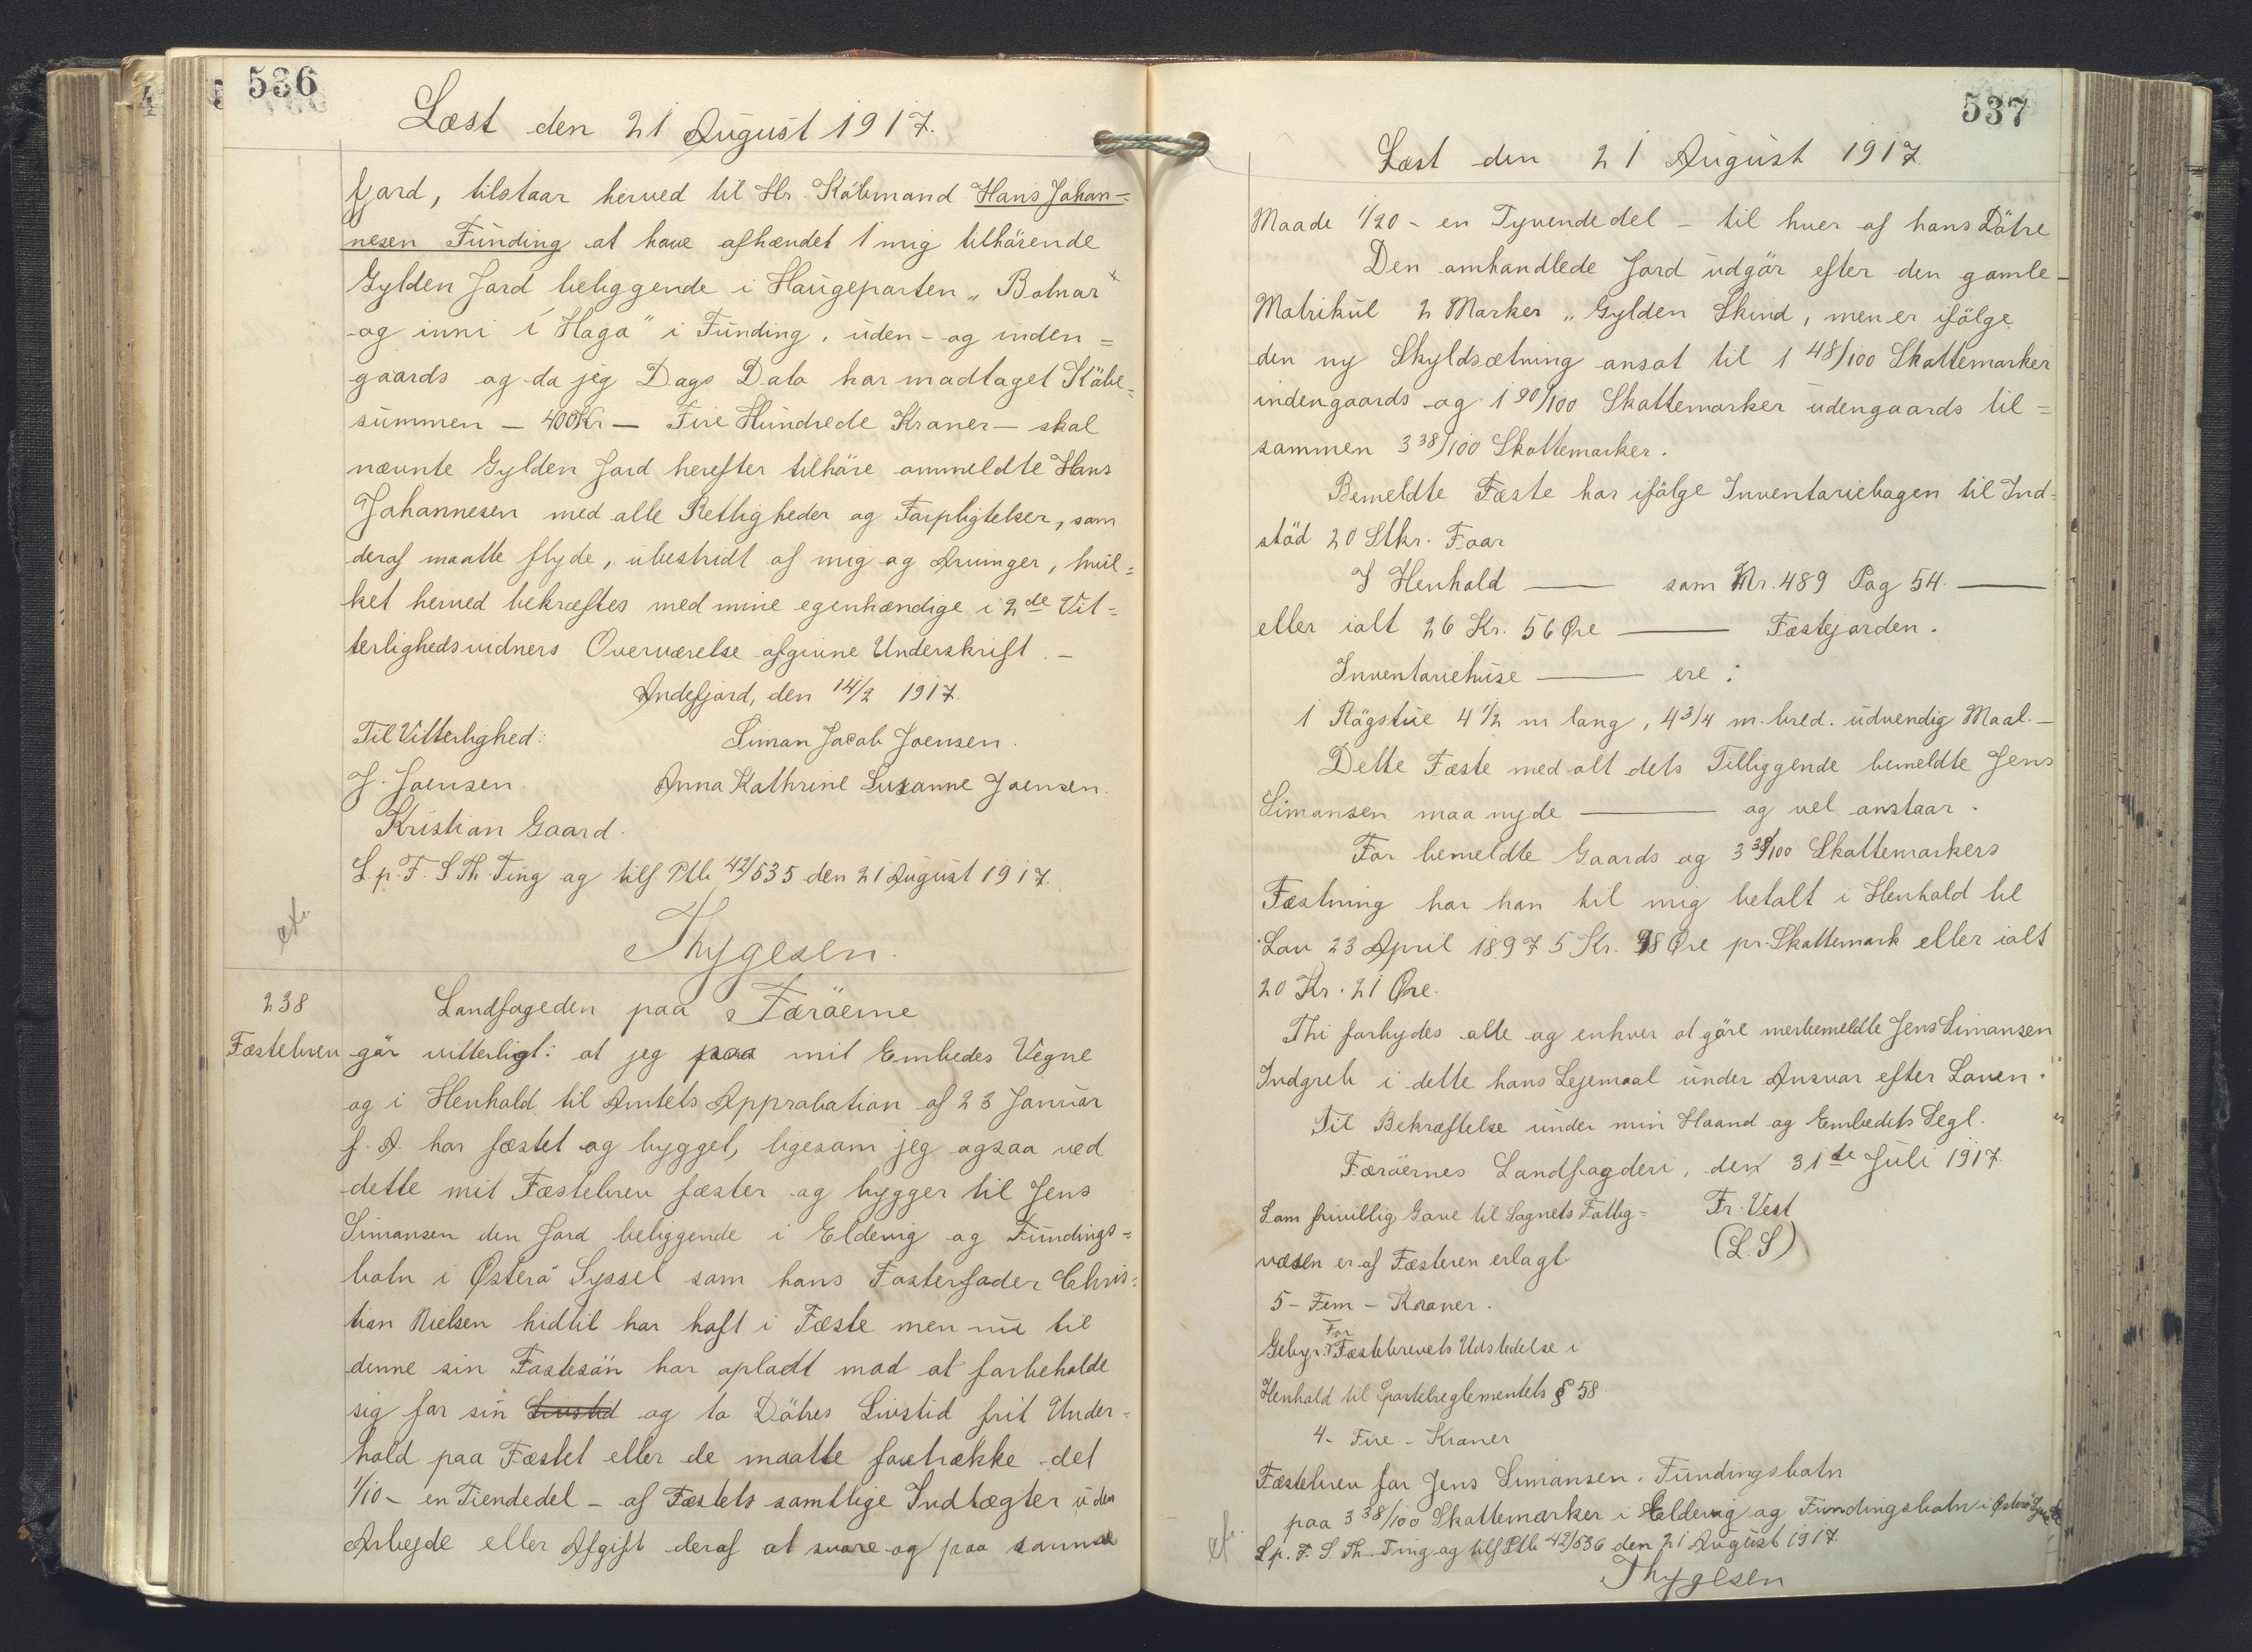 536
Læst den 21 August 1917.
fjord, tilstaar herved til Hr. Købmand Hans Johan=
nesen Funding at have afhændet 1 mig tilhörende
Gylden Jord beliggende i Haugeparten „Botnar
og inni i Haga" i Funding, uden- og inden=
gaards og da jeg Dags Dato har modtaget Köbe=
summen – 400 Kr – Fire Hundrede Kroner – skal
nævnte Gylden Jord herefter tilhöre ommeldte Hans
Johannesen med alle Rettigheder og Forpligtelser, som
deraf maatte flyde, ubestridt af mig og Arvinger, hvil=
ket herved bekræftes med mine egenhændige i 2de Vit=
terlighedsvidners Overværelse afgivne Underskrift. –
Andefjord, den 14/2 1917.
Til Vitterlighed: Simon Jacob Joensen.
J. Joensen. Anna Kathrine Susanne Joensen.
Kristian Gaard.
L. p. F. S. Th. Ting og tilf. Ptb 42/535 den 21 August 1917.
Thygesen.
238 Landfogeden paa Færöerne
Fæstebrev gör vitterligt: at jeg paa mit Embedes Vegne
og i Henhold til Amtets Approbation af 23 Januar
f. A. har fæstet og bygget, ligesom jeg ogsaa ved
dette mit Fæstebrev fæster og bygger til Jens
Simonsen den Jord beliggende i Eldevig og Fundings=
botn i Østerö Syssel som hans Fosterfader Chris=
tian Nielsen hidtil har haft i Fæste men nu til
denne sin Fostesön har opladt mod at forbeholde
sig for sin Livstid og to Dötres Livstid frit Under=
hold paa Fæstet eller de maatte foretrække det
1/10 – en Tiendedel – af Fæstets samtlige Indtægter uden
Arbejde eller Afgift deraf at svare og paa samme
537
Læst den 21 August 1917.
Maade 1/20 – en Tyvendedel – til hver af hans Dötre
Den omhandlede Jord udgör efter den gamle
Matrikul 2 Marker „Gylden Skind, men er ifölge
den ny Skyldsætning ansat til 1 48/100 Skattemarker
indengaards og 1 90/100 Skattemarker udengaards til=
sammen 3 38/100 Skattemarker.
Bemeldte Fæste har ifölge Inventariebogen til Ind=
stöd 20 Stkr. Faar
I Henhold —— som Nr. 489 Pag 54. ——
eller ialt 26 Kr. 56 Øre —— Fæstejorden.
Inventariehuse —— ere:
1 Rögstue 4 1/2 m lang, 4 3/4 m. bred. udvendig Maal. –
Dette Fæste med alt dets Tilliggende bemeldte Jens
Simonsen maa nyde —— og vel anstaar.
For bemeldte Gaards og 3 38/100 Skattemarkers
Fæstning har han til mig betalt i Henhold til
Lov 23 April 1897 5 Kr. 98 Øre pr. Skattemark eller ialt
20 Kr. 21 Øre.
Thi forbydes alle og enhver at göre merbemeldte Jens Simonsen
Indgreb i dette hans Lejemaal under Ansvar efter Loven.
Til Bekræftelse under min Haand og Embedets Segl.
Færöernes Landfogderi, den 31te Juli 1917.
Som frivillig Gave til Sognets Fattig= Fr. Vest
væsen er af Fæsteren erlagt (L. S)
5 – Fem – Kroner.
For
Gebyr. Fæstebrevets Udstedelse i
Henhold til Sportelreglementets § 58
4 – Fire – Kroner
Fæstebrev for Jens Simonsen. Fundingsbotn
paa 3 38/100 Skattemarker i Eldevig og Fundingsbotn i Østerö Syssel
L. p. F. S. Th. Ting og tilf Ptb 42/536 den 21 August 1917.
Thygesen